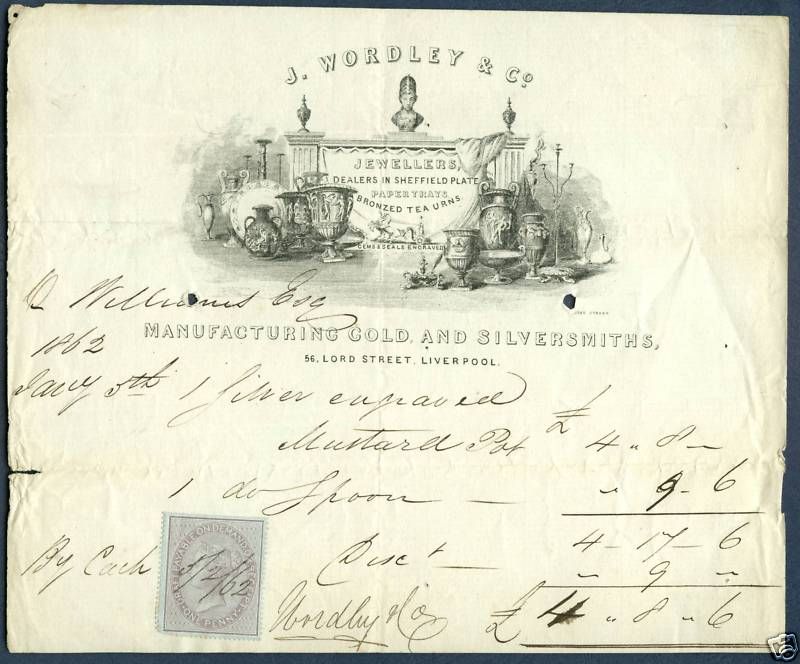 J. WORDLEY & Co.
JEWELLERS,
DEALERS IN SHEFFIELD PLATE
PAPER TRAYS
BRONZED TEA URNS.
GEMS & SEALS ENGRAVED
Williams Esq
MANUFACTURING GOLD, AND SILVERSMITHS,
1862
56, LORD STREET, LIVERPOOL.
Jany 5th 1 Silver engraved
Mustard Pot £ 4 " 8 "
1 do Spoon — " 9 - 6
4 - 17 - 6
By Cash Disct — " 9 "
Wordley & Co £ 4 " 8 " 6
PAYABLE ON DEMAND
ONE PENNY
5/2/62